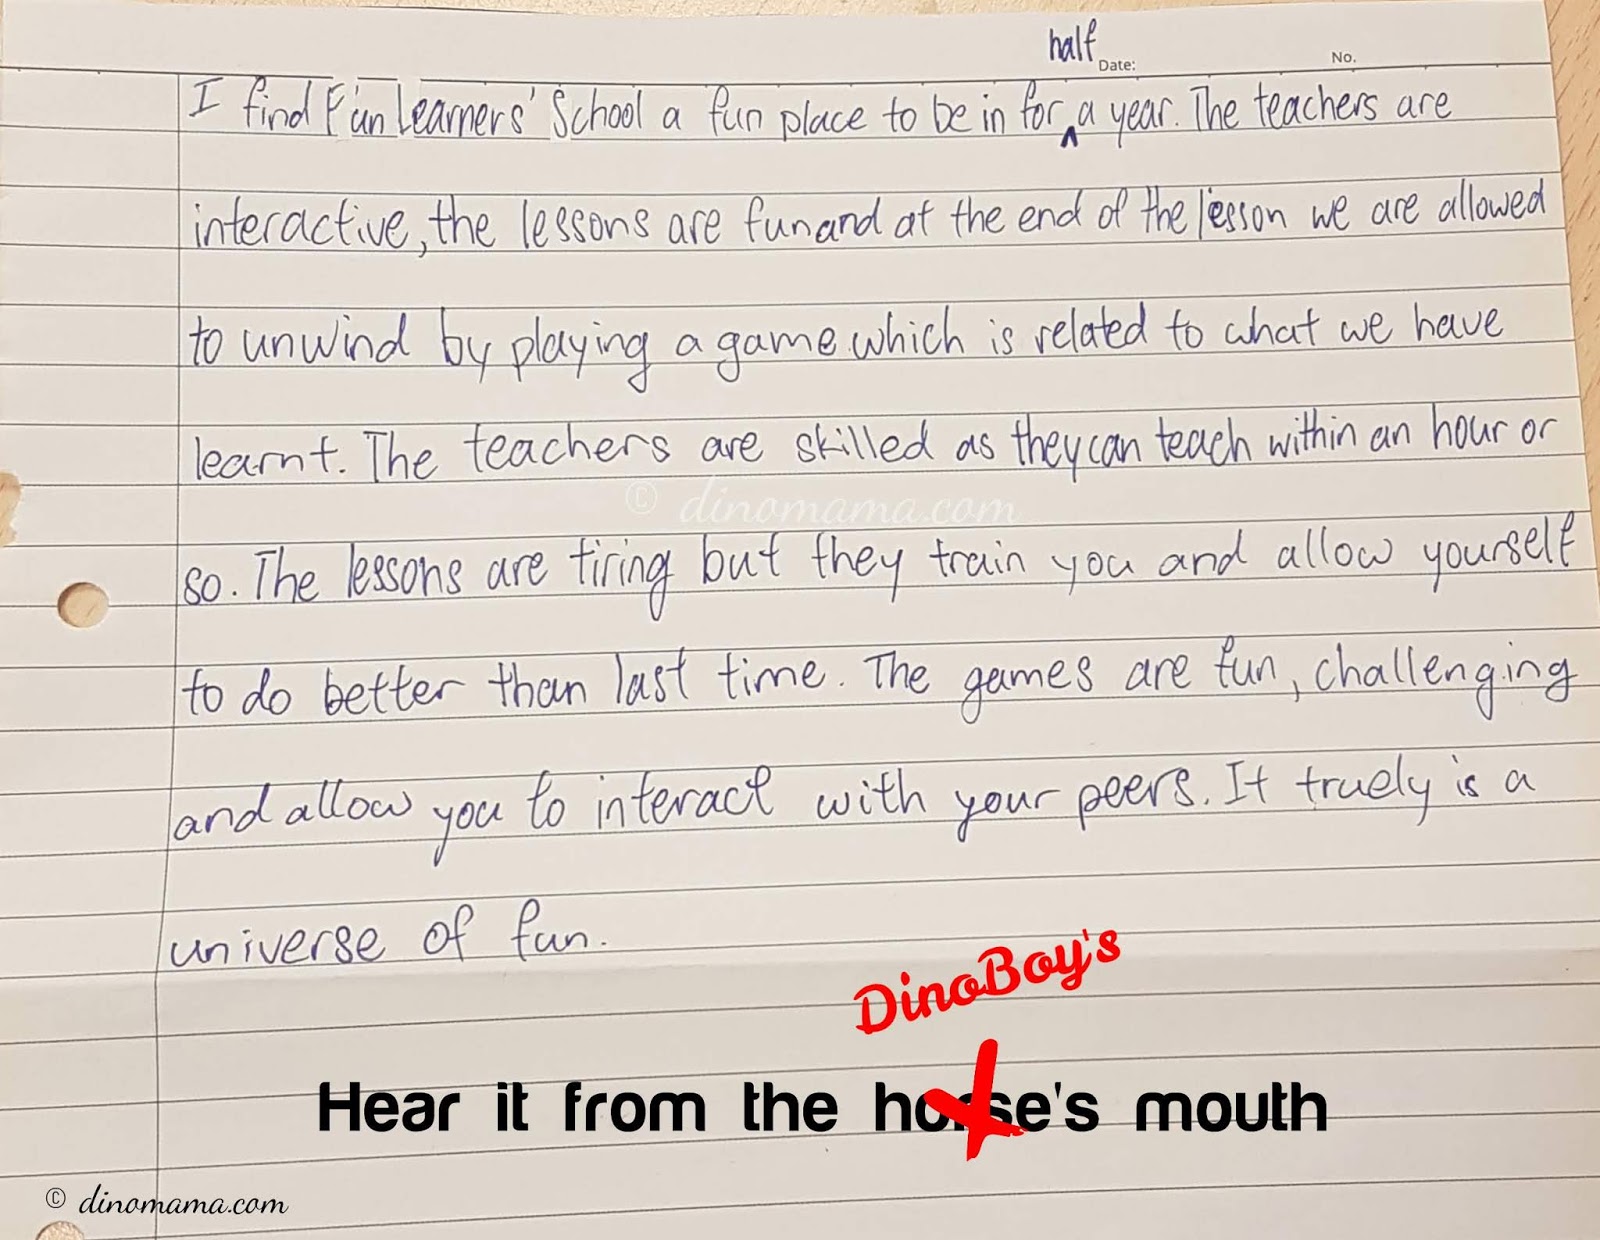 half
Date:
No.
I find Fun Learners' School a fun place to be in for ^ a year. The teachers are
interactive, the lessons are fun and at the end of the lesson we are allowed
to unwind by playing a game which is related to what we have
learnt. The teachers are skilled as they can teach within an hour or
© dinomama.com
so. The lessons are tiring but they train you and allow yourself
to do better than last time. The games are fun, challenging
and allow you to interact with your peers. It truely is a
universe of fun.
DinoBoy's
Hear it from the horse's mouth
© dinomama.com